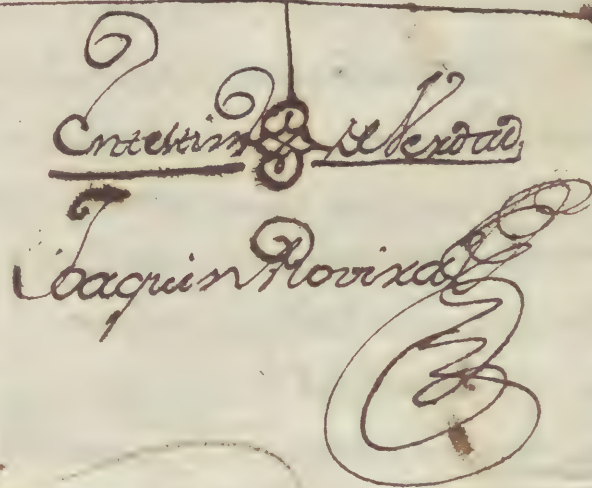 En testim.º de Verdad,
Joaquin Rovira